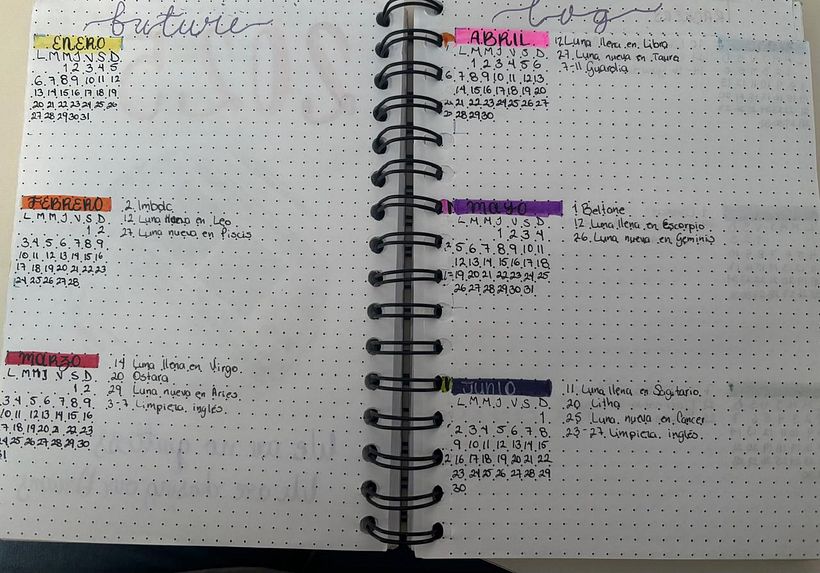 future
ENERO
L M M J V S D
1 2 3 4 5
6 7 8 9 10 11 12
13 14 15 16 17 18 19
20 21 22 23 24 25 26
27 28 29 30 31
FEBRERO
L M M J V S D
1 2
3 4 5 6 7 8 9
10 11 12 13 14 15 16
17 18 19 20 21 22 23
24 25 26 27 28
2 Imbolc
12 Luna en Leo
27 Luna nueva en Piscis
MARZO
L M M J V S D
1 2
3 4 5 6 7 8 9
10 11 12 13 14 15 16
17 18 19 20 21 22 23
24 25 26 27 28 29 30
31
14 Luna llena en Virgo
20 Ostara
29 Luna nueva en Aries
3-7 Limpieza inglés
Log
ABRIL
L M M J V S D
1 2 3 4 5 6
7 8 9 10 11 12 13
14 15 16 17 18 19 20
21 22 23 24 25 26 27
28 29 30
12 Luna llena en Libra
27 Luna nueva en Tauro
7-11 Guardia
MAYO
L M M J V S D
1 2 3 4
5 6 7 8 9 10 11
12 13 14 15 16 17 18
19 20 21 22 23 24 25
26 27 28 29 30 31
1 Beltane
12 Luna llena en Escorpio
26 Luna nueva en Geminis
JUNIO
L M M J V S D
1
2 3 4 5 6 7 8
9 10 11 12 13 14 15
16 17 18 19 20 21 22
23 24 25 26 27 28 29
30
11 Luna llena en Sagitario
20 Litha
25 Luna nueva en Cancer
23-27 Limpieza inglés